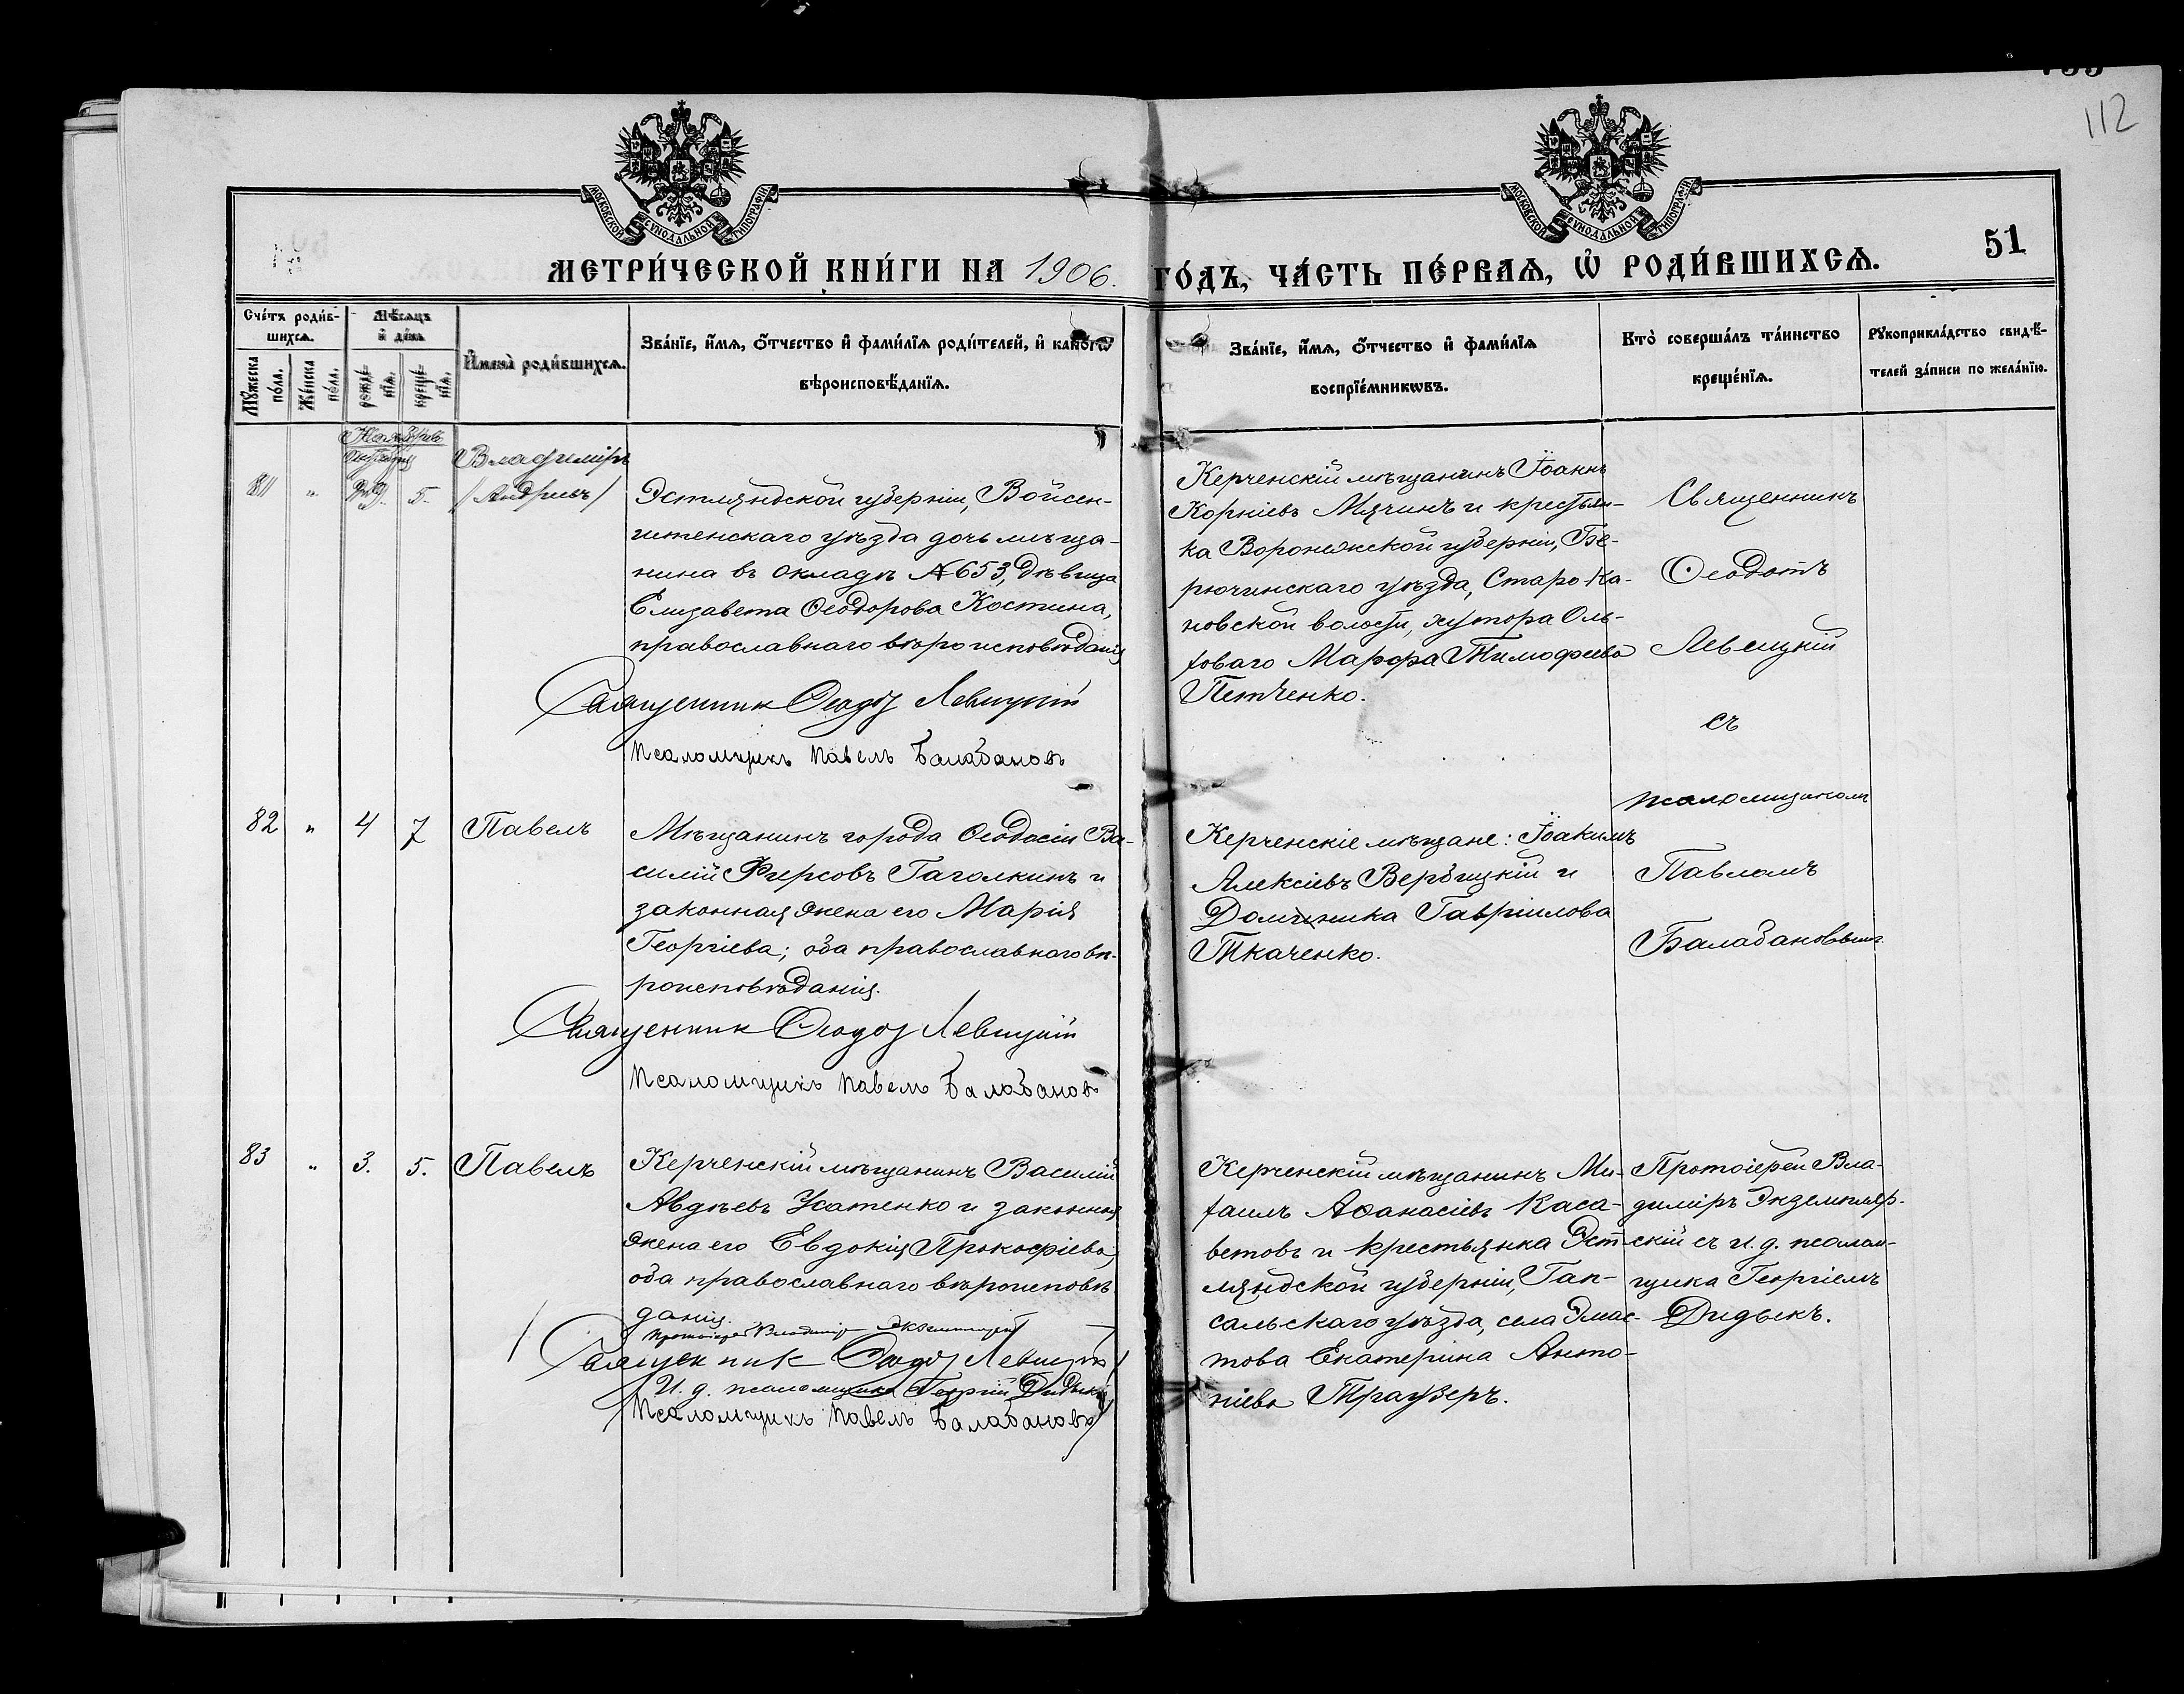 112
МОСКОВСКОЙ СѴНОДАЛЬНОЙ ТИПОГРАФІИ
МОСКОВСКОЙ СѴНОДАЛЬНОЙ ТИПОГРАФІИ
МЕТРИ́ЧЕСКОЙ КНИ́ГИ НА 1906.
ГО́ДЪ, ЧА́СТЬ ПЕ́РВАѦ, Ѡ҆ РОДИ́ВШИХСѦ.
51
Сче́тъ роди́в-
шихсѧ.
Мꙋ́жеска
по́ла.
Же́нска
по́ла.
Мѣ́сѧцъ
и҆ де́нь
рожде́-
нїѧ.
креще́-
нїѧ.
И҆мена̀ роди́вшихсѧ.
Зва́нїе, и҆́мѧ, ѻ҆́тчество и҆ фами́лїѧ роди́телей, и҆ како́гѡ
вѣроисповѣ́данїѧ.
Зва́нїе, и҆́мѧ, ѻ҆́тчество и҆ фами́лїѧ
воспрїе́мникѡвъ.
Кто̀ соверша́лъ та́инство
креще́нїѧ.
Рꙋкоприкла́дство свидѣ́-
телей за́писи по жела́нїю.
81 " 5.
Владиміръ
Эстляндской губерніи, Войсен-
штенскаго уѣзда дочь мѣща-
нина въ окладѣ №653, дѣвица
Елизавета Ѳеодорова Костина,
православнаго вѣроисповѣданія
Священник Ѳеодот Левицкій
Псаломщикъ Павелъ Балабановъ
Керченскій мѣщанинъ Іоаннъ
Корніевъ Мячинъ и крестьян-
ка Воронежской губерніи, Би-
рючинскаго уѣзда, Старо-
новской волости, хутора Оль-
ховаго Марфа Тимофеева
Петченко.
Священникъ
Ѳеодотъ
Левицкій
съ
псаломщикомъ
Павломъ
Балабановымъ
82 " 4 7 Павелъ
Мѣщанинъ города Ѳеодосіи Ва-
силій Фирсовъ Гаголкинъ и
законная жена его Марія
Георгіева; оба православнаго вѣ-
роисповѣданія.
Священник Ѳеодот Левицкій
Псаломщикъ Павелъ Балабановъ
Керченскіе мѣщане: Іоакимъ
Алексіевъ Вербицкій и
Домника Гавріилова
Ткаченко.
83 " 3. 5. Павелъ
Керченскій мѣщанинъ Василій
Авдѣевъ Усатенко и законная
жена его Евдокія Прокофіева,
оба православнаго вѣроисповѣ
данія.
Протоіерей Владимір Экземплярскій
Священник Ѳеодот Левицкій
И. д. псаломщика Георгій Дидыкъ
Псаломщикъ Павелъ Балабановъ
Керченскій мѣщанинъ Ми-
хаилъ Аѳанасіевъ Каса-
ветовъ и крестьянка Эст-
ляндской губерніи, Гап-
сальскаго уѣзда, села
Екатерина Анто-
ніева Траузеръ.
Протоіерей Вла-
диміръ Экземпляр-
скій съ и. д. псалом-
щика Георгіемъ
Дидыкъ.